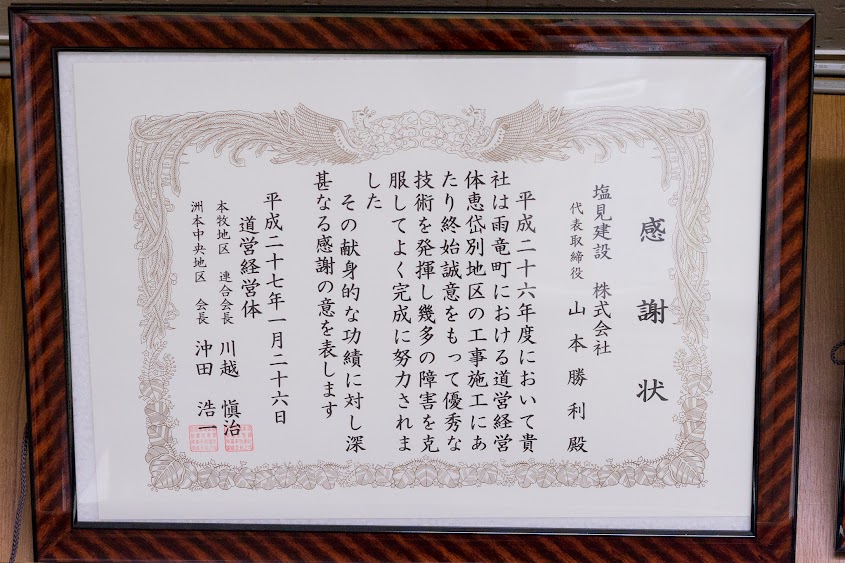 感謝状
塩見建設 株式会社
代表取締役 山本勝利殿
平成二十六年度において貴
社は雨竜町における道営経営
体恵岱別地区の工事施工にあ
たり終始誠意をもって優秀な
技術を発揮し幾多の障害を克
服してよく完成に努力されま
した
その献身的な功績に対し深
甚なる感謝の意を表します
平成二十七年一月二十六日
道営経営体
本牧地区 連合会長 川越 愼治
洲本中央地区 会長 沖田 浩一